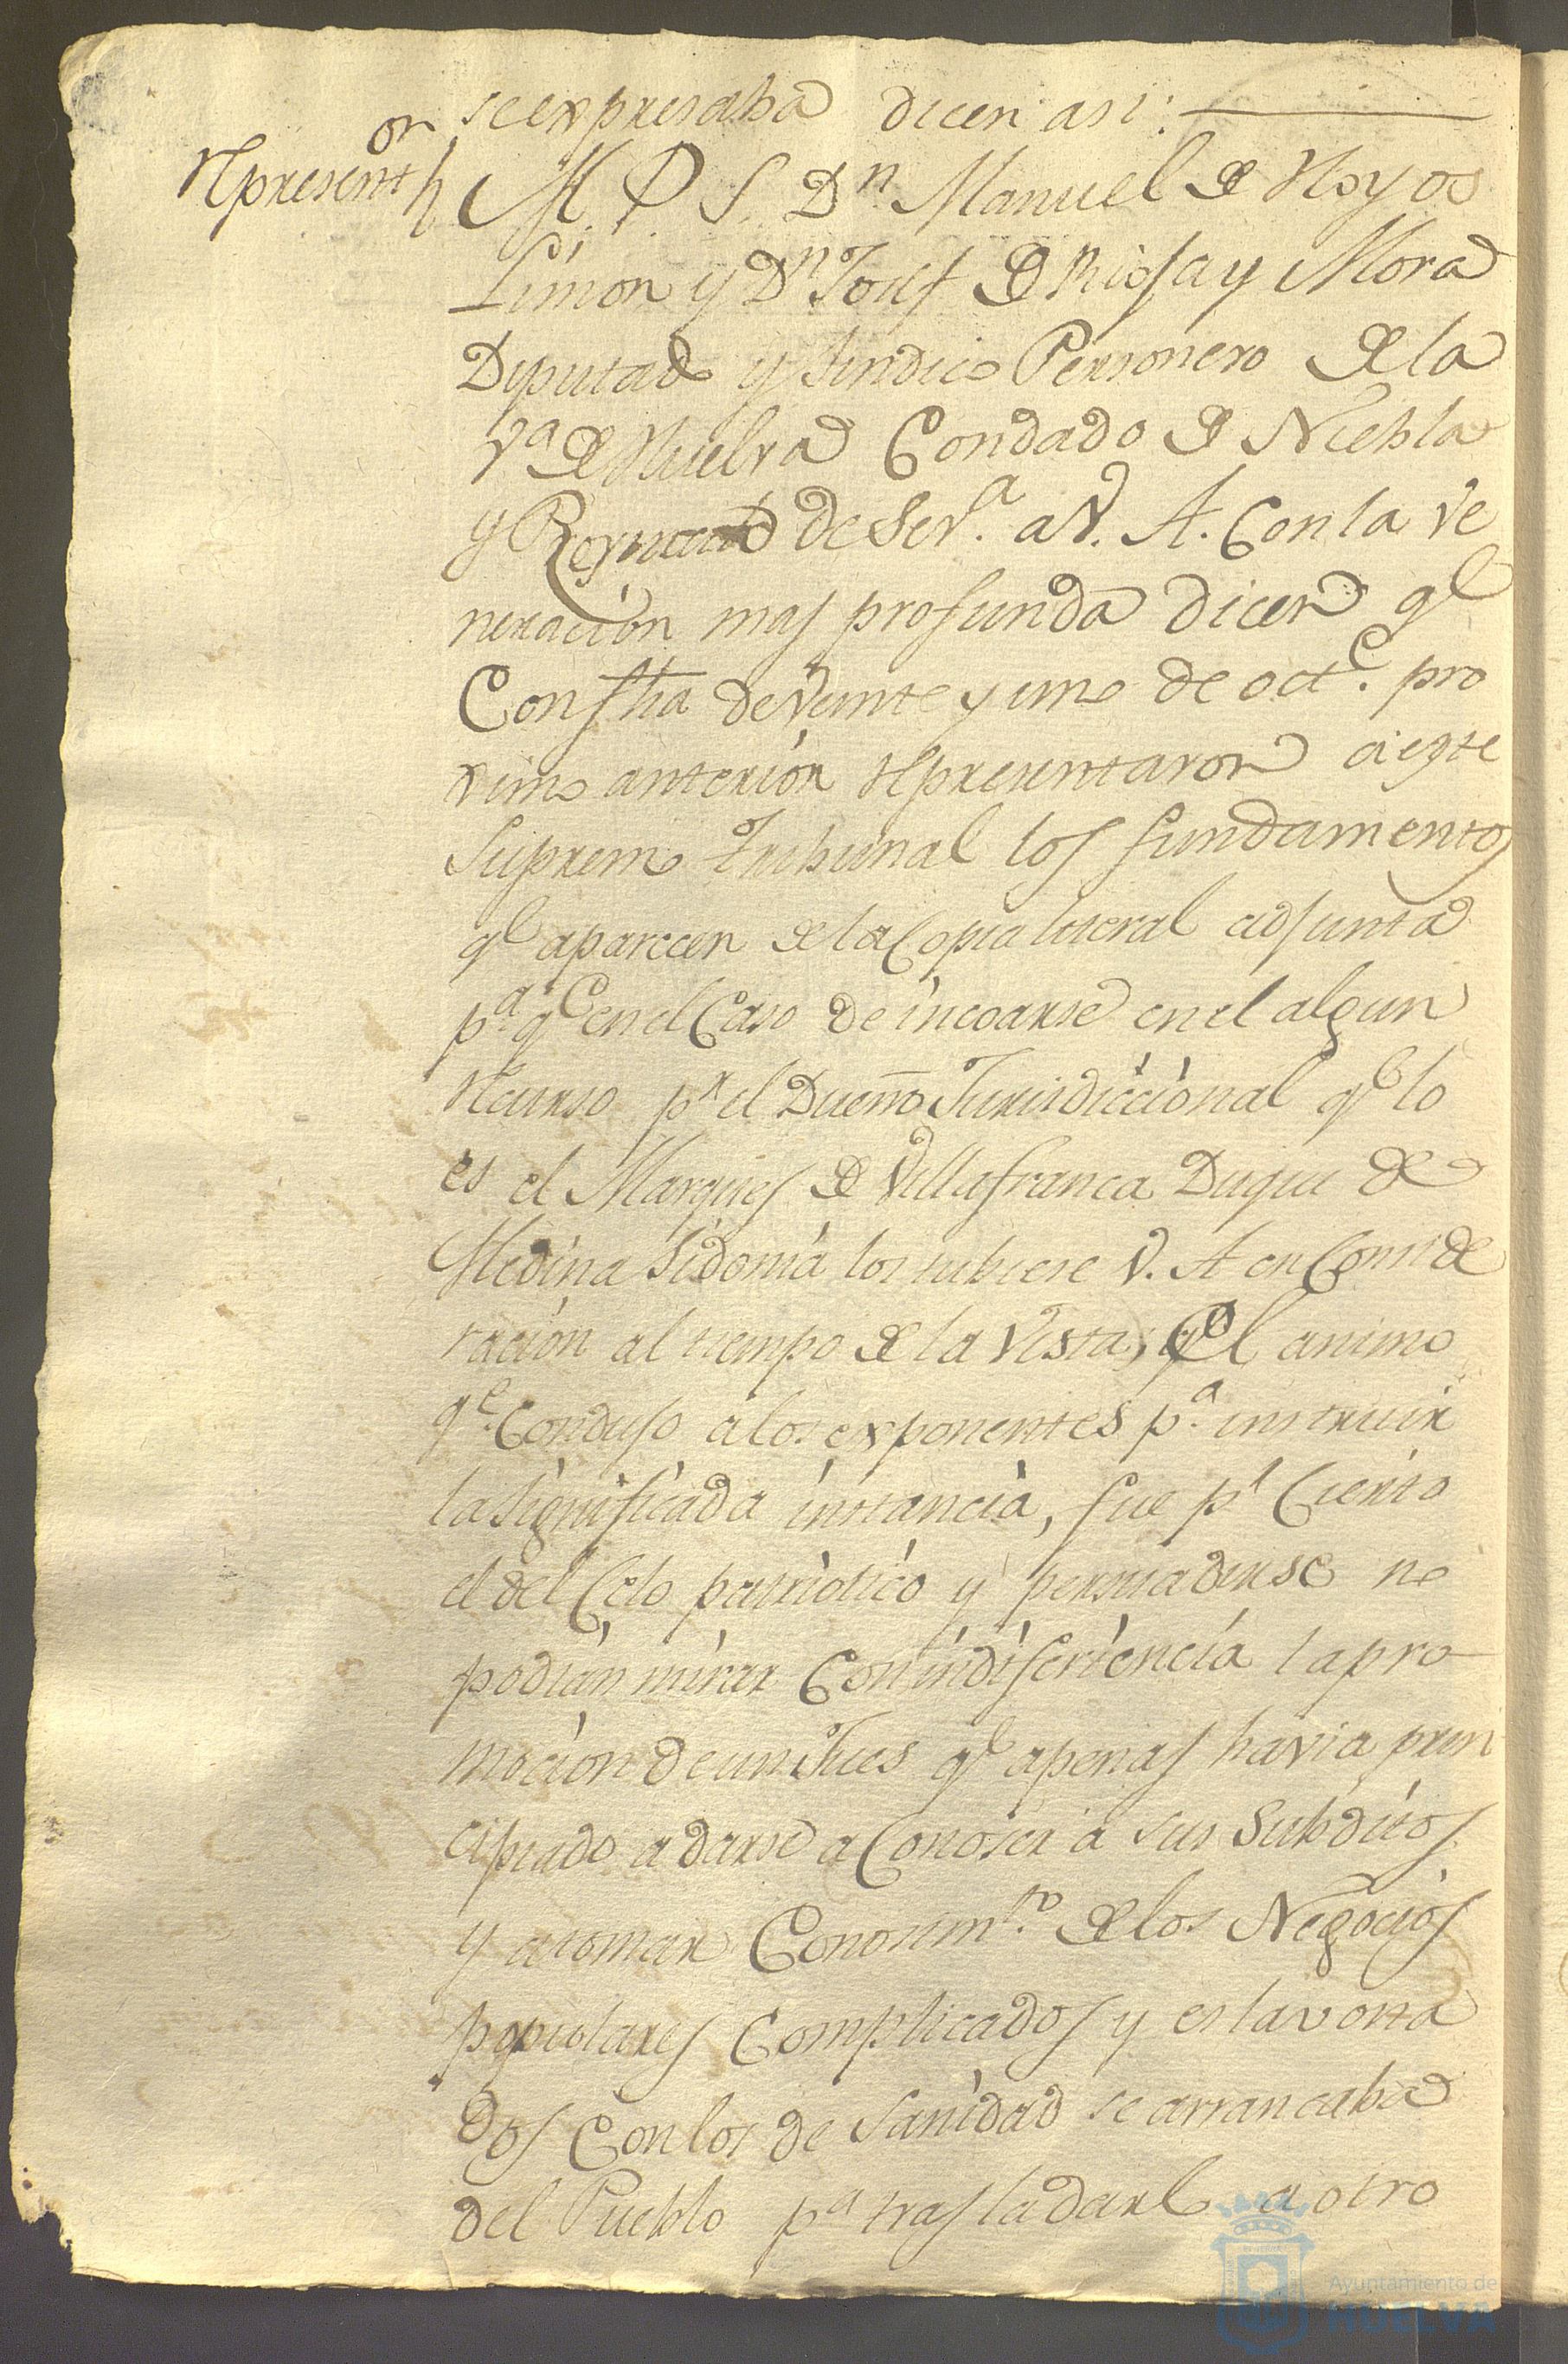 se expresaba dicen asi:
Representn.
M. P. S. Dn. Manuel de Hoyos
Limon y Dn. Josef de Mioja y Mora
Diputado y Sindico Personero de la
Va. de Huelva Condado de Niebla
y Reynado de Sev.a a V. A. Con la ve
neracion mas profunda dicen qe.
Con fha de veinte y uno de octe. pro
ximo anterior representaron a este
Supremo Tribunal los fundamentos
qe. aparecen de la Copia literal adjunta
pa. qe. en el Caso de incoarse en el algun
recurso pr. el Dueño Jurisdiccional qe. lo
es el Marques de Villafranca Duque de
Medina Sidonia los tubiese V. A. en Conside
racion al tiempo de la vista, qe. el animo
qe. Condujo a los exponentes pa. instruir
la significada instancia, fue pr. Cierto
el del Celo patriotico y persuadirse no
podian mirar Con indiferiencia la pro
mocion de un Jues qe. apenas havia prin
cipiado a darse a Conoser a sus Subditos
y a tomar Conosimto. de los Negocios
populares Complicados y eslavona
dos Con los de Sanidad se arrancaba
del Pueblo pa. trasladarle a otro
Ayuntamiento de
HUELVA